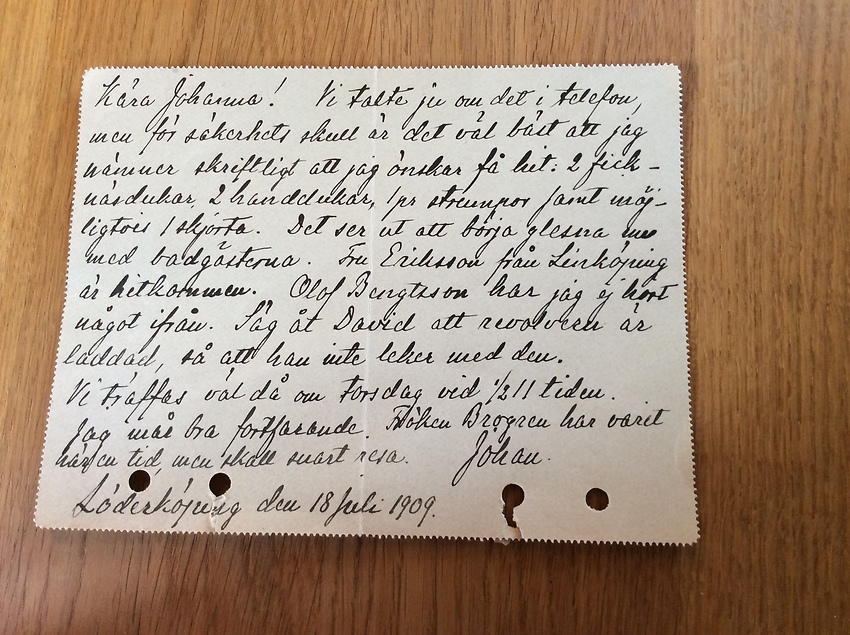 Kära Johanna! Vi talte ju om det i telefon,
men för säkerhets skull är det väl bäst att jag
nämner skriftligt att jag önskar få hit: 2 fick-
näsdukar, 2 handdukar, 1 pr strumpor samt möj-
ligtvis 1 skjorta. Det ser ut att börja glesna
med badgästerna. Fru Eriksson från Linköping
är hitkommen. Olof Bengtsson har jag ej hört
något ifrån. Säg åt David att revolvern är
laddad, så att han inte leker med den.
Vi träffas väl då om Torsdag vid 1/2 11 tiden.
Jag mår bra fortfarande. Fröken Brogren har varit
här en tid, men skall snart resa. Johan.
Söderköping den 18 Juli 1909.